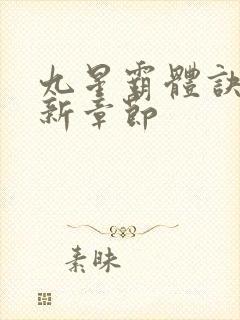 九星霸體訣
新章節
素昧